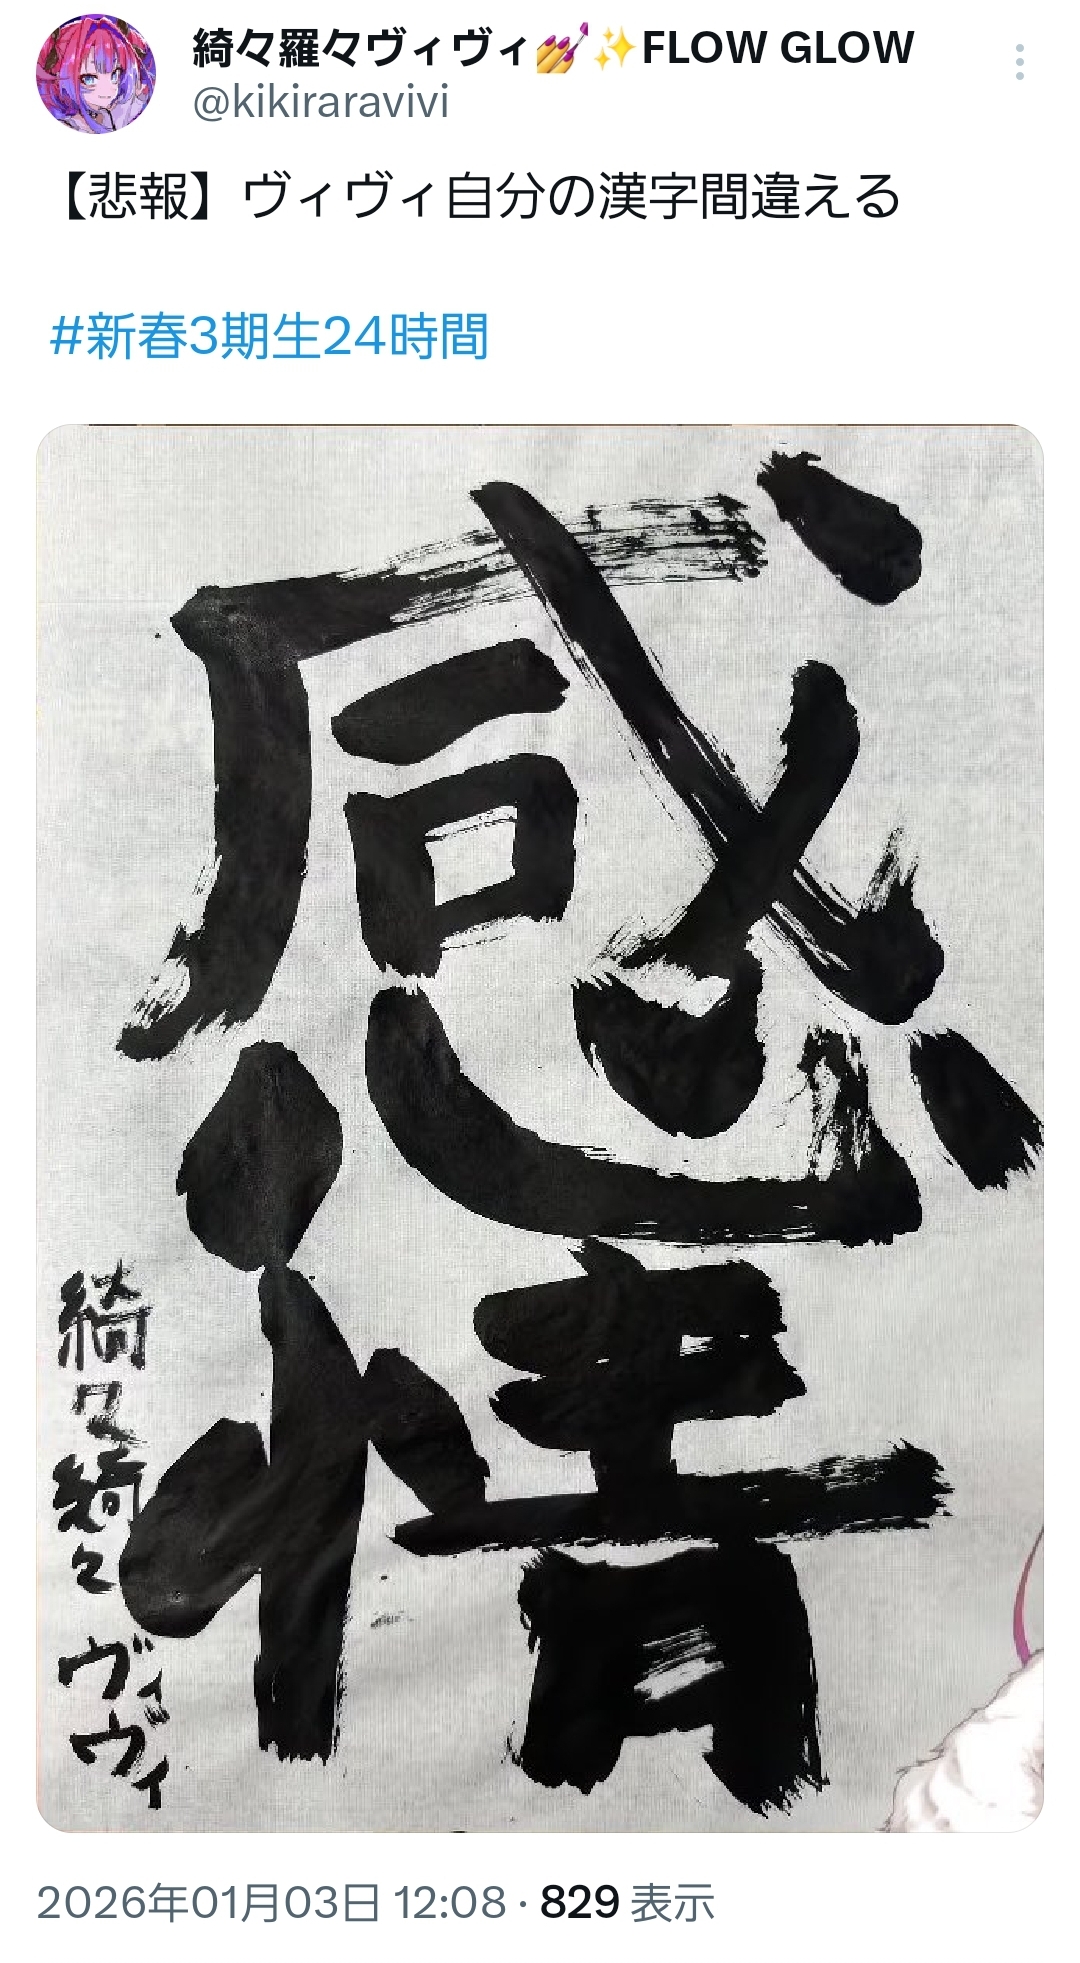 綺々羅々ヴィヴィ💅✨FLOW GLOW
@kikiraravivi
【悲報】ヴィヴィ自分の漢字間違える
#新春3期生24時間
感
情
綺々綺々ヴィヴィ
2026年01月03日 12:08 · 829 表示